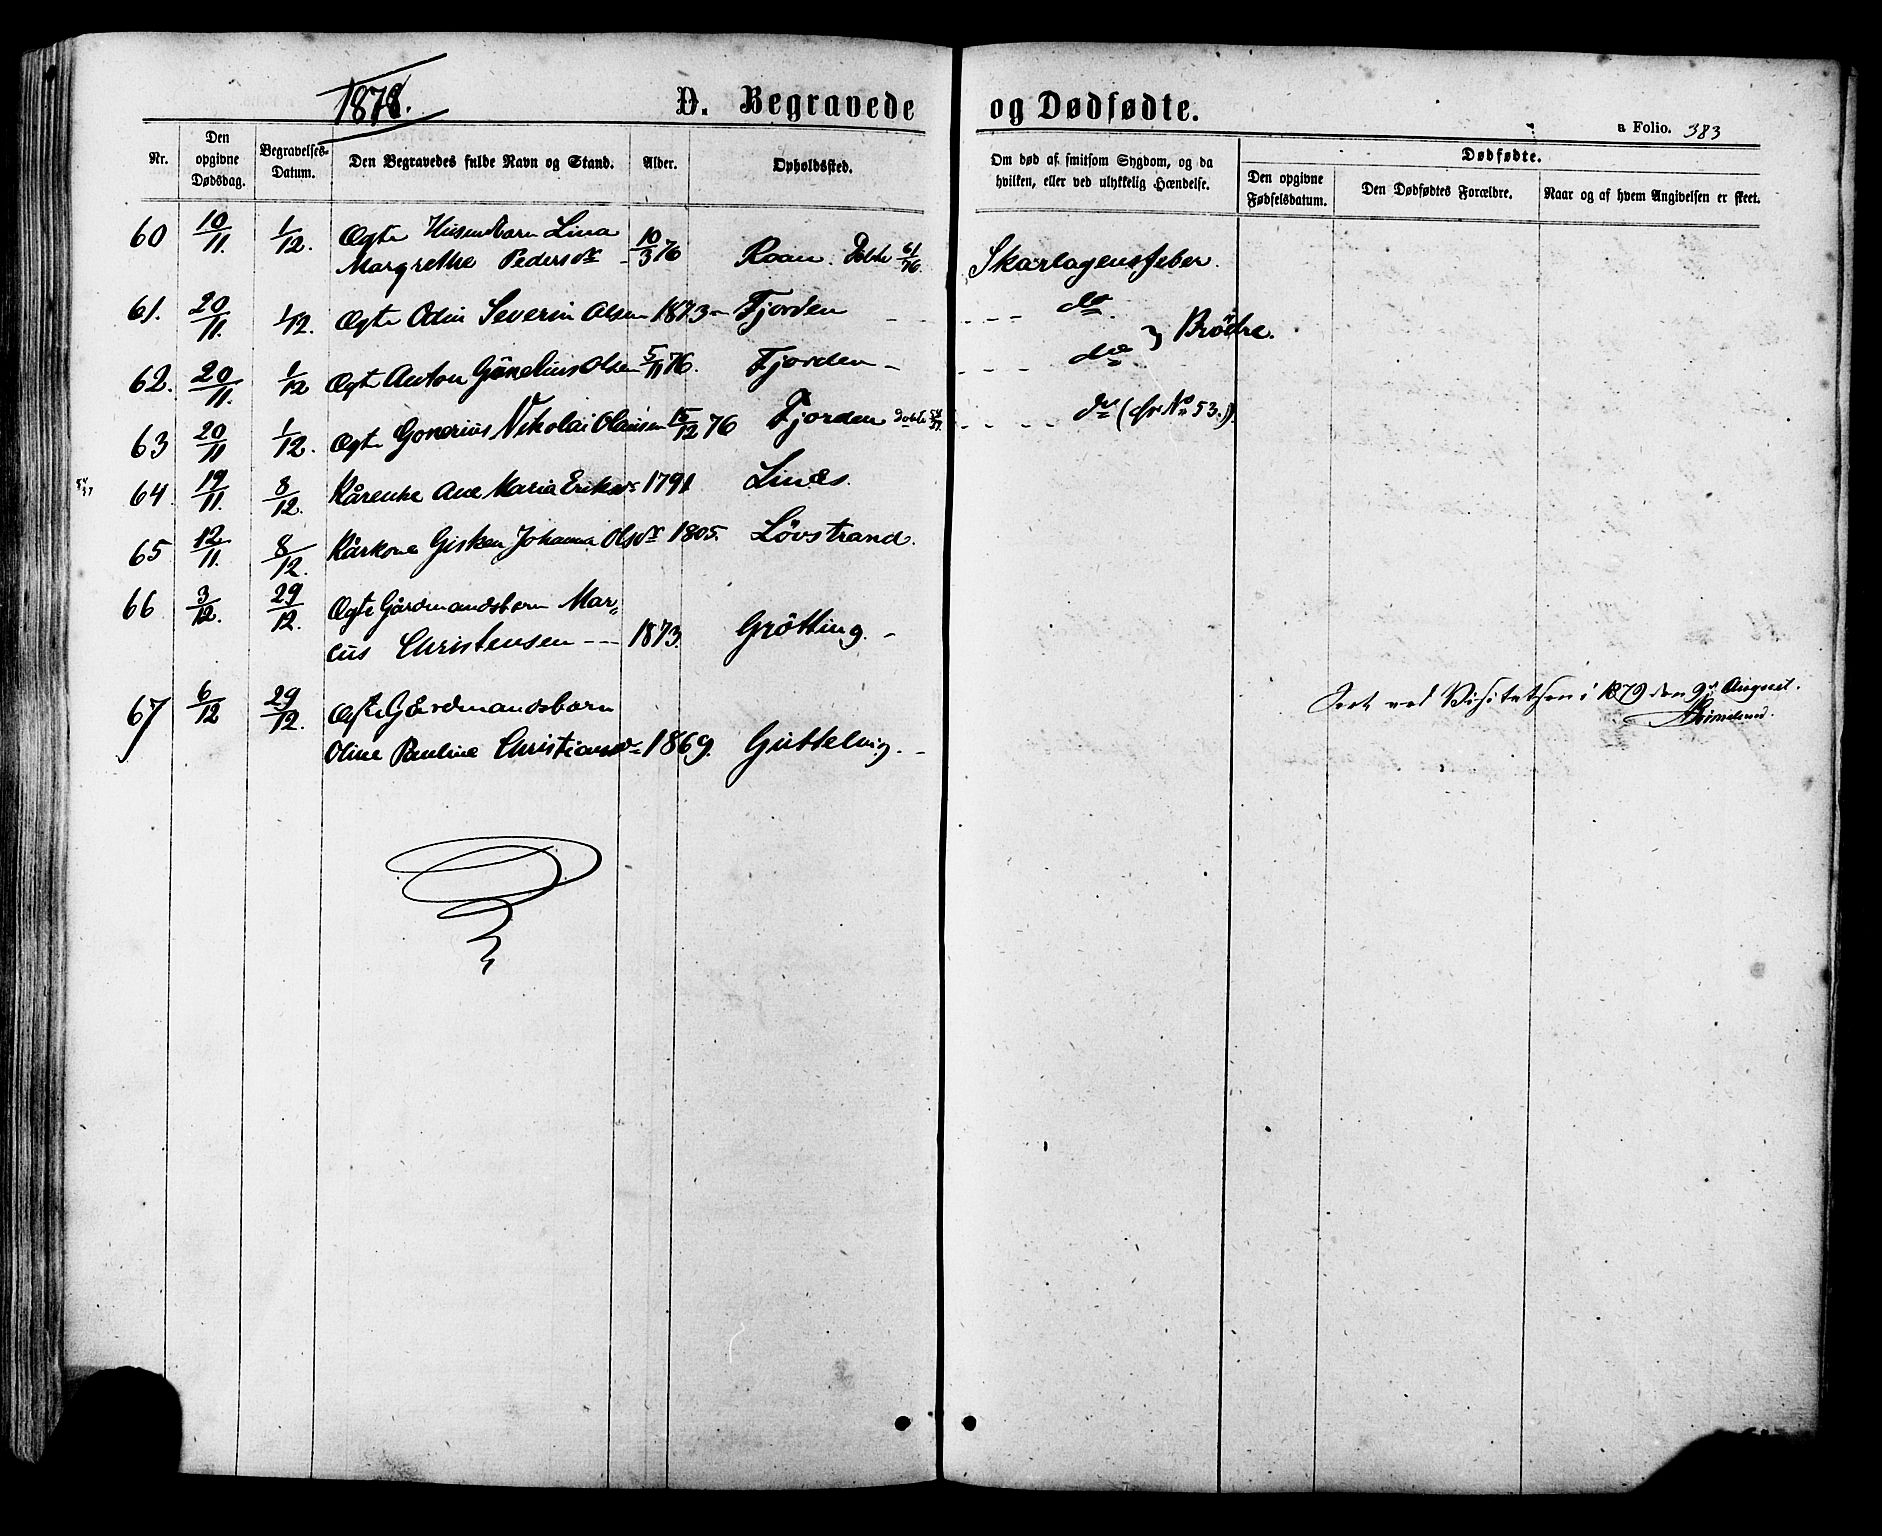 1878.
D. Begravede og Dødfødte.
a Folio. 383
Nr.
Den opgivne Dødsdag.
Begravelses-Datum.
Den Begravedes fulde Navn og Stand.
Alder.
Opholdssted.
Om død af smitsom Sygdom, og da hvilken, eller ved ulykkelig Hændelse.
Dødfødte.
Den opgivne Fødselsdatum.
Den Dødfødtes Forældre.
Naar og af hvem Angivelsen er skeet.
60 10/11 1/12. Ægte Lina
Margrethe Pedersdr 10/3 76 Roan. Døbte 61/76 Skarlagensfeber.
61. 20/11. 1/12. Ægte Odin Severin Olsen 1873 - Fjorden do.
} Brödre.
62. 20/11. 1/12 Ægte Anton Olsen 5/11 76. Fjorden - do
63 20/11 1/12. Ægte Nikolai 15/12 76 Fjorden do (cfr No 53.)
64. 19/11. 8/12. Ane Maria Eriksdr 1791 Lines.
65 12/11. 8/12. Kårkone Gisken Johanna Olsdr 1805. Lövstrand.
66 3/12. 29/12. Ægte Gårdmandsbarn Mar-
cus Christensen - - 1873. Grötting. -
67 6/12 29/12. Ægte Gårdmandsbarn
Oline Pauline Christiansdr 1869. Guttelvig. -
Seet ved Visitatsen i 1879 den 9de August.